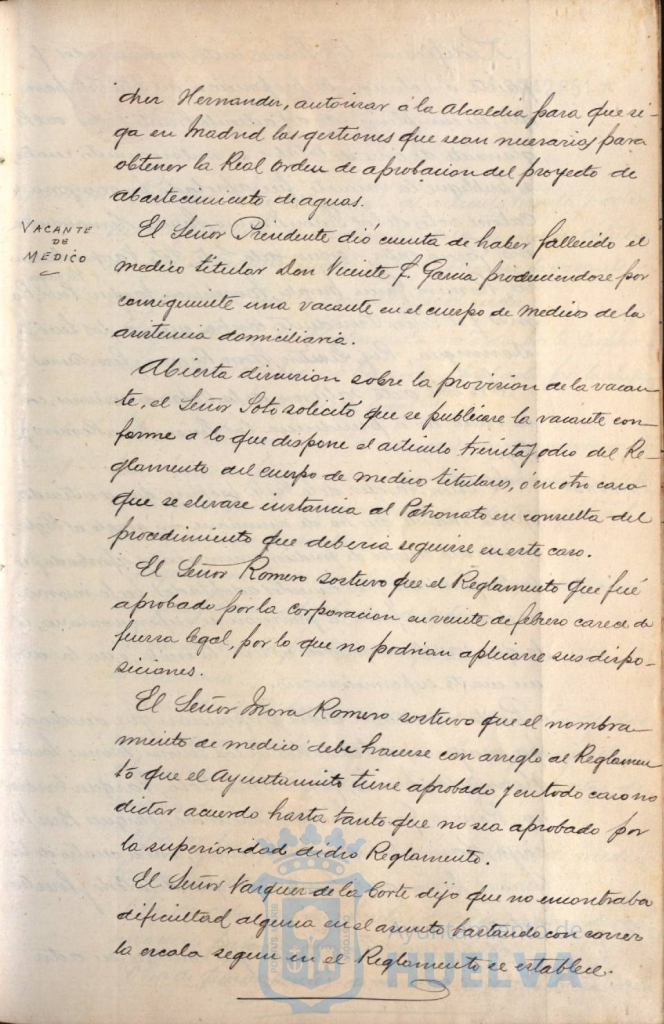 chez Hernandez, autorizar á la Alcaldia para que si-
ga en Madrid las gestiones que sean necesarias para
obtener la Real orden de aprobacion del proyecto de
abastecimiento de aguas.
VACANTE
DE
MEDICO
El Señor Presidente dió cuenta de haber fallecido el
medico titular Don Vicente F. Garcia produciendose por
consiguiente una vacante en el cuerpo de medicos de la
asistencia domiciliaria.
Abierta discusion sobre la provision de la vacan-
te, el Señor Soto solicitó que se publicase la vacante con-
forme a lo que dispone el articulo treinta y ocho del Re-
glamento del cuerpo de medico titulares, ó en otro caso
que se elevase instancia al Patronato en consulta del
procedimiento que deberia seguirse en este caso.
El Señor Romero sostuvo que el Reglamento que fué
aprobado por la corporacion en veinte de febrero carece de
fuerza legal, por lo que no podrian aplicarse sus dispo-
siciones.
El Señor Mora Romero sostuvo que el nombra-
miento de medico debe hacerse con arreglo al Reglamen-
to que el Ayuntamiento tiene aprobado y en todo caso no
dictar acuerdo hasta tanto que no sea aprobado por
la superioridad dicho Reglamento.
El Señor Vazquez de la Corte dijo que no encontraba
dificultad alguna en el asunto bastando con correr
la escala segun en el Reglamento se establece.
Ayuntamiento de
HUELVA